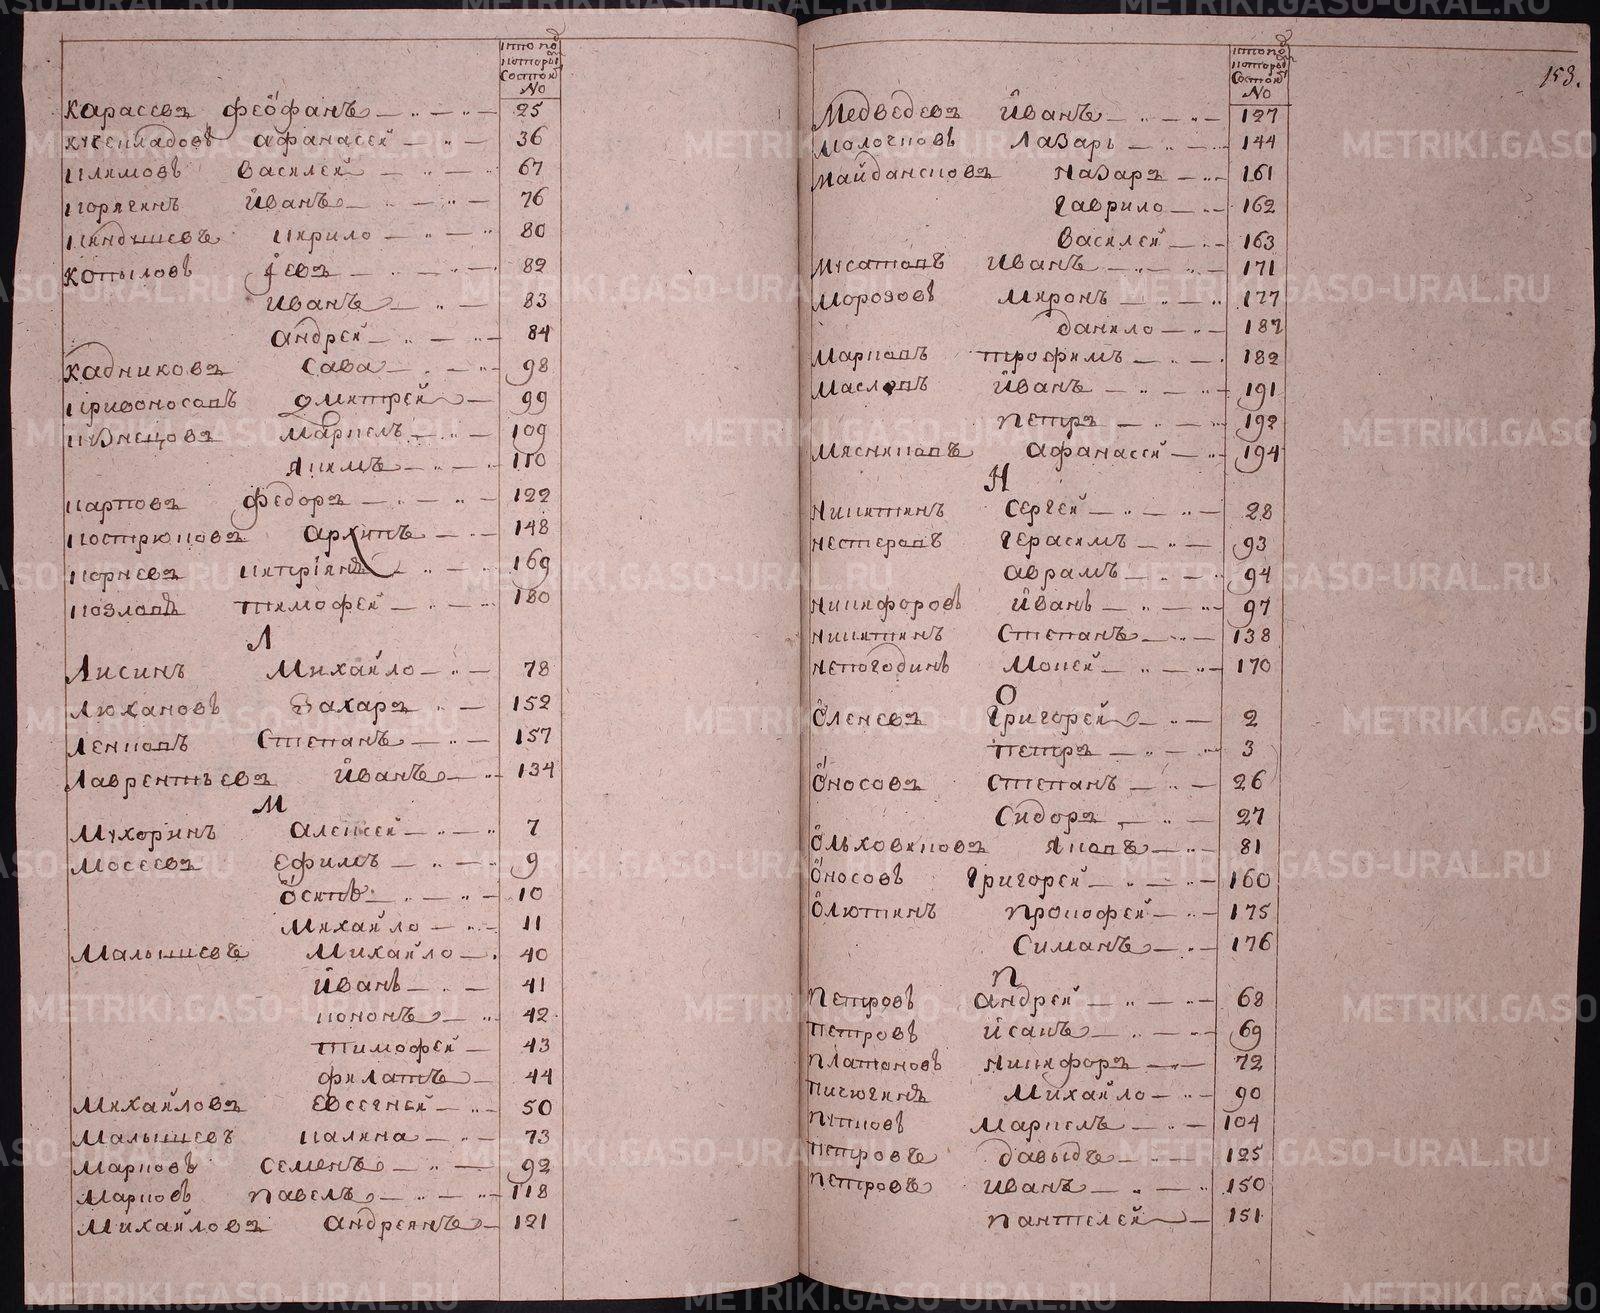 Кто под
которы
Состоя
№
Карасевъ Феѳфанъ 25
Кисенладовъ афанасей 36
климовъ Василей 67
корякинъ Иванъ 76
киндышевъ кирило 80
Копыловъ Іевъ 82
Иванъ 83
андрей 84
Кадниковъ Сава 98
кривоносовъ дмитрей 99
кузнецовъ Маркелъ 109
якимъ 110
карповъ Федоръ 122
кострюковъ архипъ 148
корневъ киприянъ 169
козловъ тимофей 180
Л
Лисинъ Михайло 78
Люхановъ Захаръ 152
Ленковъ Степанъ 157
Лаврентьевъ Иванъ 134
М
Мухоринъ Алексей 7
Мосеевъ Ефимъ 9
Осипъ 10
Михайло 11
Малышевъ Михайло 40
Иванъ 41
кононъ 42
тимофей 43
филатъ 44
Михайловъ Евсегней 50
Малышевъ калина 73
Марковъ Семенъ 92
Марковъ павелъ 118
Михайловъ андреянъ 121
153.
Кто под
которы
Состоя
№
Медведевъ Иванъ 127
Молочковъ Лазарь 144
Майдансковъ назаръ 161
гаврило 162
Василей 163
Мусатовъ Иванъ 171
Морозовъ Миронъ 177
данило 187
Марковъ трофимъ 182
Масловъ Иванъ 191
петръ 192
Мясниковъ афанасей 194
Н
никитинъ Сергей 28
нестеровъ герасимъ 93
аврамъ 94
никифоровъ Иванъ 97
никитинъ Степанъ 138
непогодинъ Мокей 170
О
Оленевъ григорей 2
петръ 3
Оносовъ Степанъ 26
Сидоръ 27
Ольховиковъ яковъ 81
Оносовъ григорей 160
Олютинъ прокофей 175
Симанъ 176
П
петровъ андрей 68
петровъ исакъ 69
платоновъ никифоръ 72
пичюгинъ Михайло 90
путковъ Маркелъ 104
петровъ давыдъ 125
петровъ Иванъ 150
пантелей 151